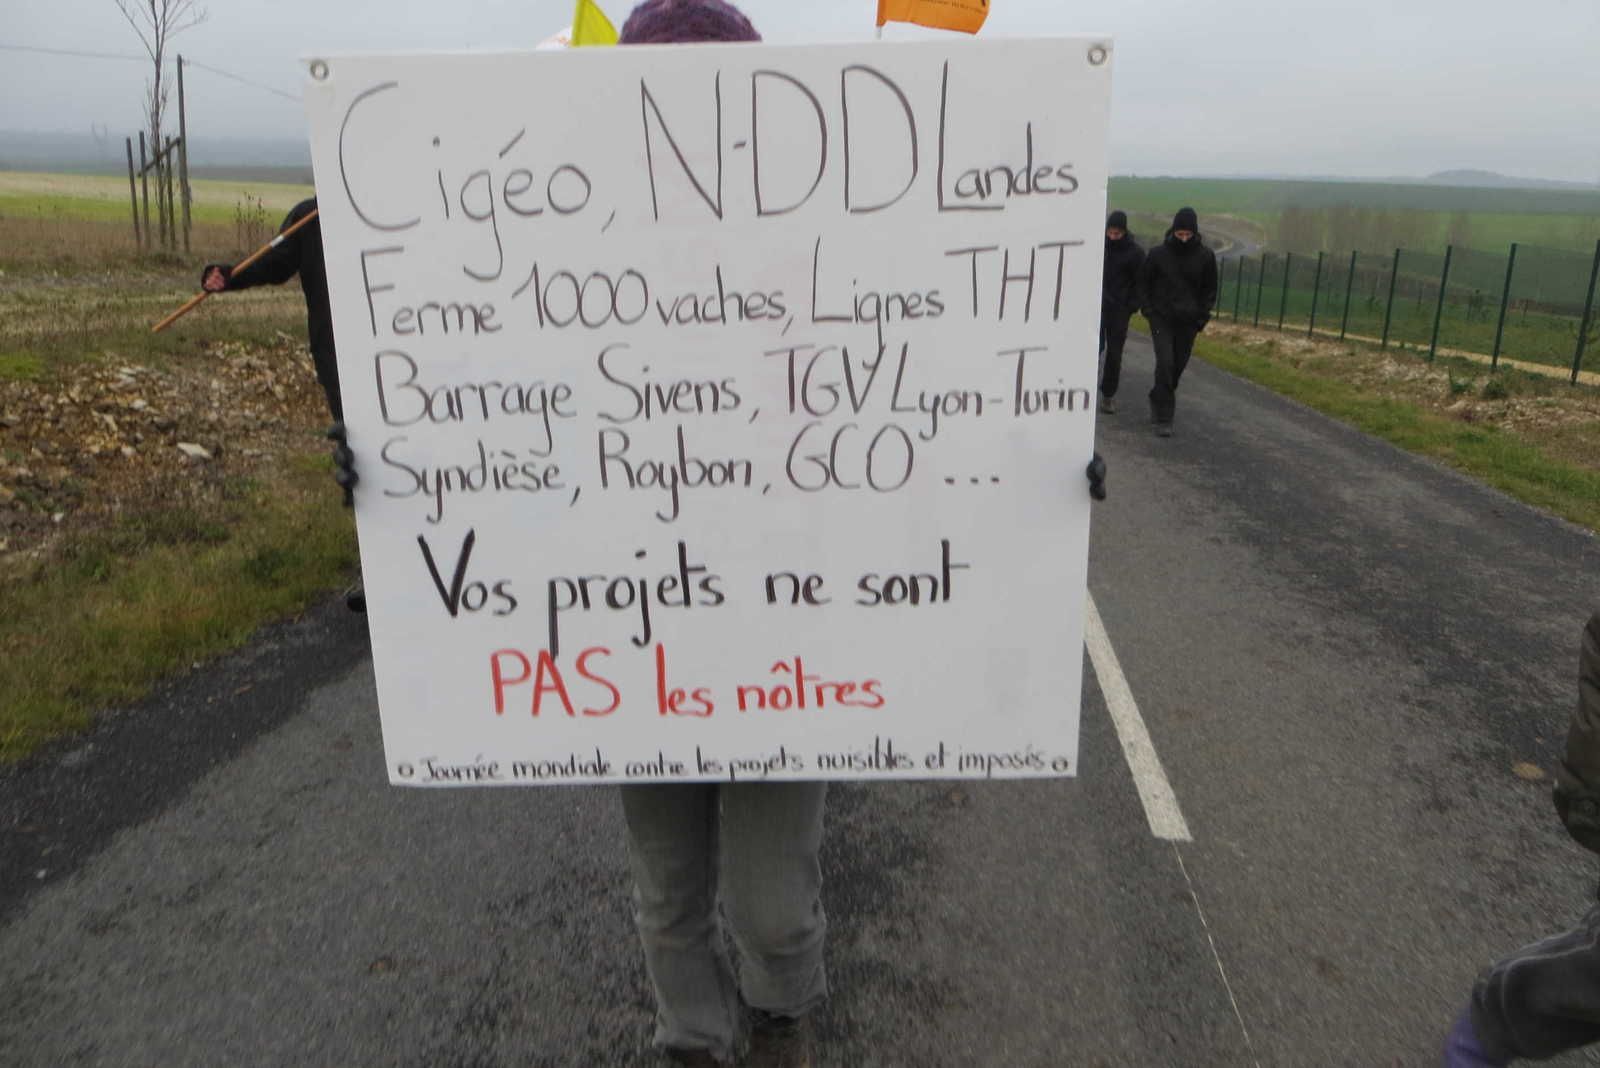 Cigéo, N-DDLandes
Ferme 1000 vaches, Lignes THT
Barrage Sivens, TGV Lyon-Turin
Syndièse, Roybon, GCO ...
Vos projets ne sont
PAS les nôtres
Journée mondiale contre les projets nuisibles et imposés